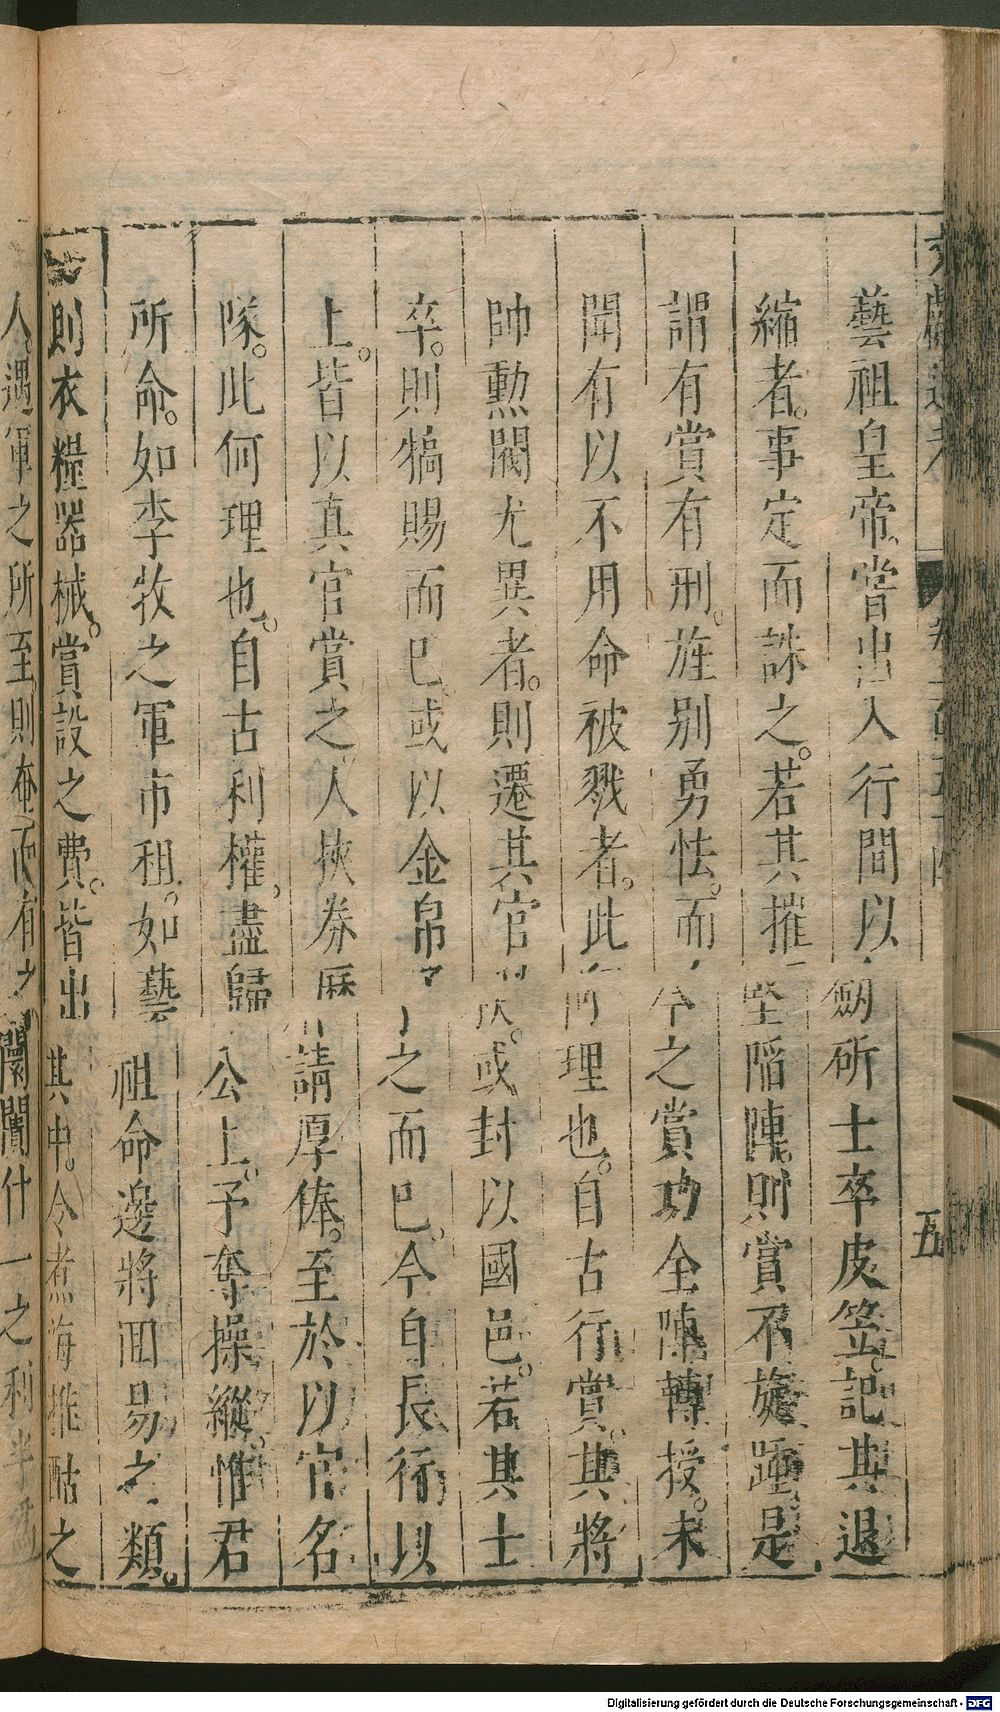 文獻通考 卷一百五十四 五
藝祖皇帝嘗出入行間以劒斫士卒皮笠記其退
縮者事定而誅之若其摧堅陥陣則賞不旋踵是
謂有賞有刑旌别勇怯而今之賞功全陣轉授未
聞有以不用命被戮者此何理也自古行賞其將
帥勲閥尤異者則遷其官秩或封以國邑若其士
卒則犒賜而已或以金帛予之而已今自長行以
上皆以真官賞之人挾劵厤請厚俸至於以官名
隊此何理也自古利權盡歸公上予奪操縱惟君
所命如李牧之軍市租如藝祖命邊將回易之類
則衣糧器械賞設之費皆出其中今煮海榷酤之
人遇軍之所至則奄而有之闤闠什一之利半
Digitalisierung gefördert durch die Deutsche Forschungsgemeinschaft - DFG